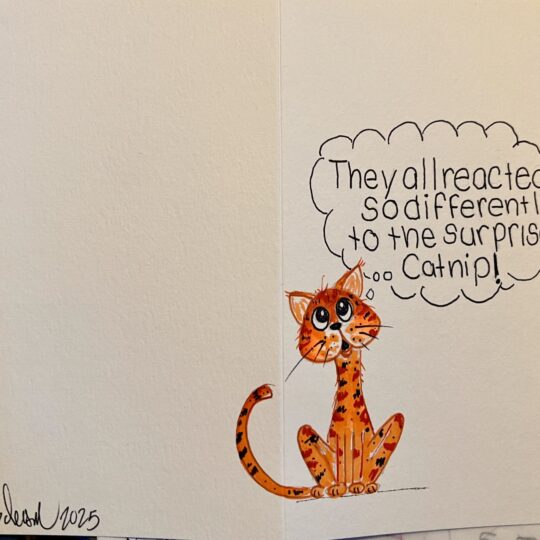 They all reacted
so differentl
to the surpris
.. Catnip!
2025